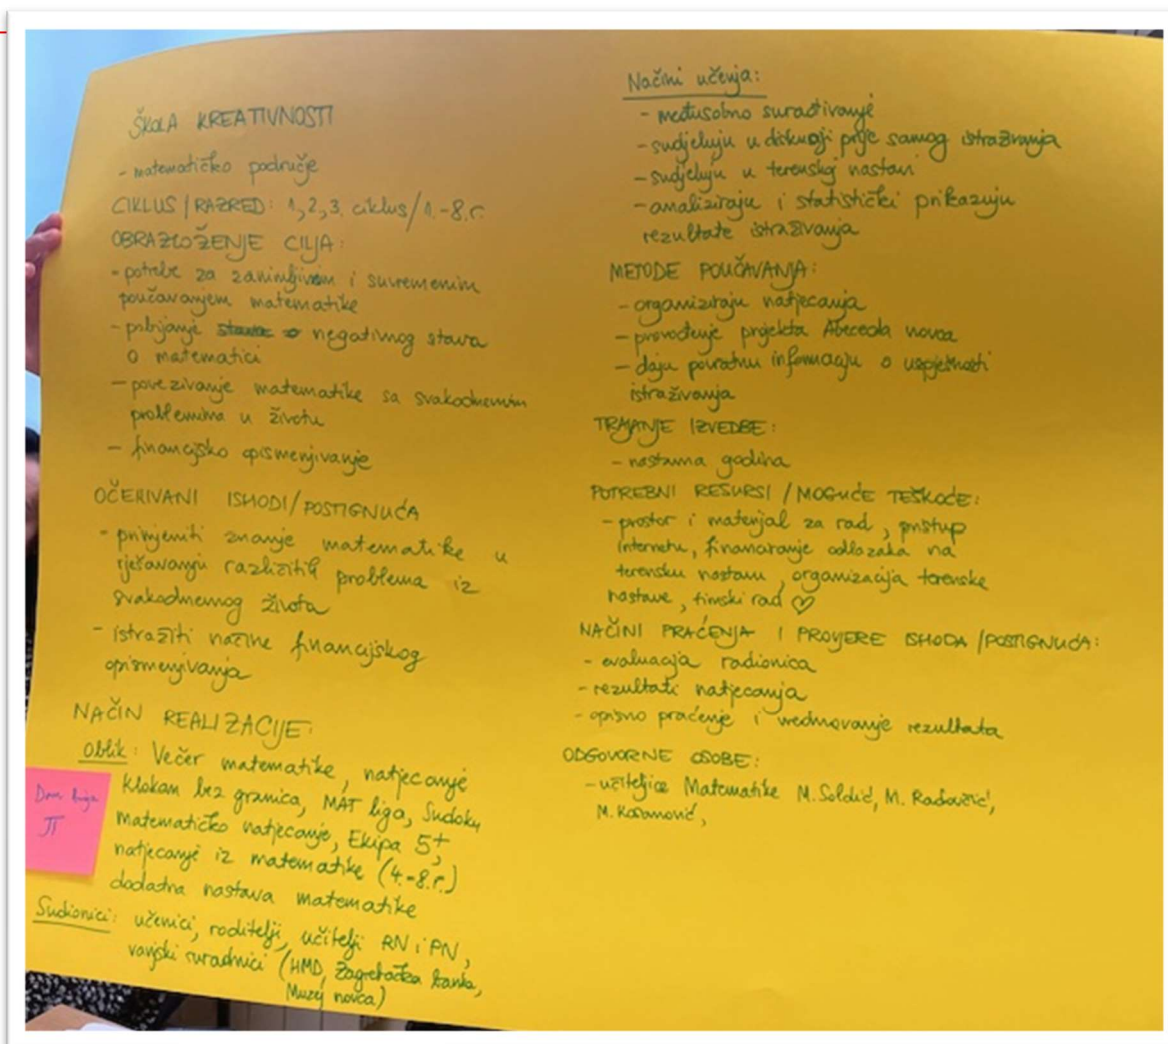 ŠKOLA KREATIVNOSTI
- matematičko područje
CIKLUS / RAZRED: 1,2,3. ciklus / 1.-8.r.
OBRAZLOŽENJE CILJA:
- potrebe za zanimljivim i suvremenim
poučavanjem matematike
- pobijanje negativnog stava
o matematici
- povezivanje matematike sa svakodnevnim
problemima u životu
- financijsko opismenjivanje
OČEKIVANI ISHODI/POSTIGNUĆA
- primjeniti znanje matematike u
rješavanju različitih problema iz
svakodnevnog života
- istražiti načine financijskog
opismenjivanja
NAČIN REALIZACIJE:
Oblik: Večer matematike, natjecanje
Klokan bez granica, MAT liga, Sudoku,
matematičko natjecanje, Ekipa 5+,
natjecanje iz matematike (4.-8.r.)
dodatna nastava matematike
Dan broja
π
Sudionici: učenici, roditelji, učitelji RN i PN,
vanjski suradnici (HMD, Zagrebačka banka,
Muzej novca)
Načini učenja:
- međusobno surađivanje
- sudjeluju u diskusiji prije samog istraživanja
- sudjeluju u terenskoj nastavi
- analiziraju i statistički prikazuju
rezultate istraživanja
METODE POUČAVANJA:
- organiziraju natjecanja
- provođenje projekta Abeceda novca
- daju povratnu informaciju o uspješnosti
istraživanja
TRAJANJE IZVEDBE:
- nastavna godina
POTREBNI RESURSI / MOGUĆE TEŠKOĆE:
- prostor i materijal za rad, pristup
internetu, financiranje odlazaka na
terensku nastavu, organizacija terenske
nastave, timski rad ♡
NAČINI PRAĆENJA I PROVJERE ISHODA / POSTIGNUĆA:
- evaluacija radionica
- rezultati natjecanja
- opisno praćenje i vrednovanje rezultata
ODGOVORNE OSOBE:
- učiteljice Matematike M. Soldić, M. Radovčić,
M. Kosanović,